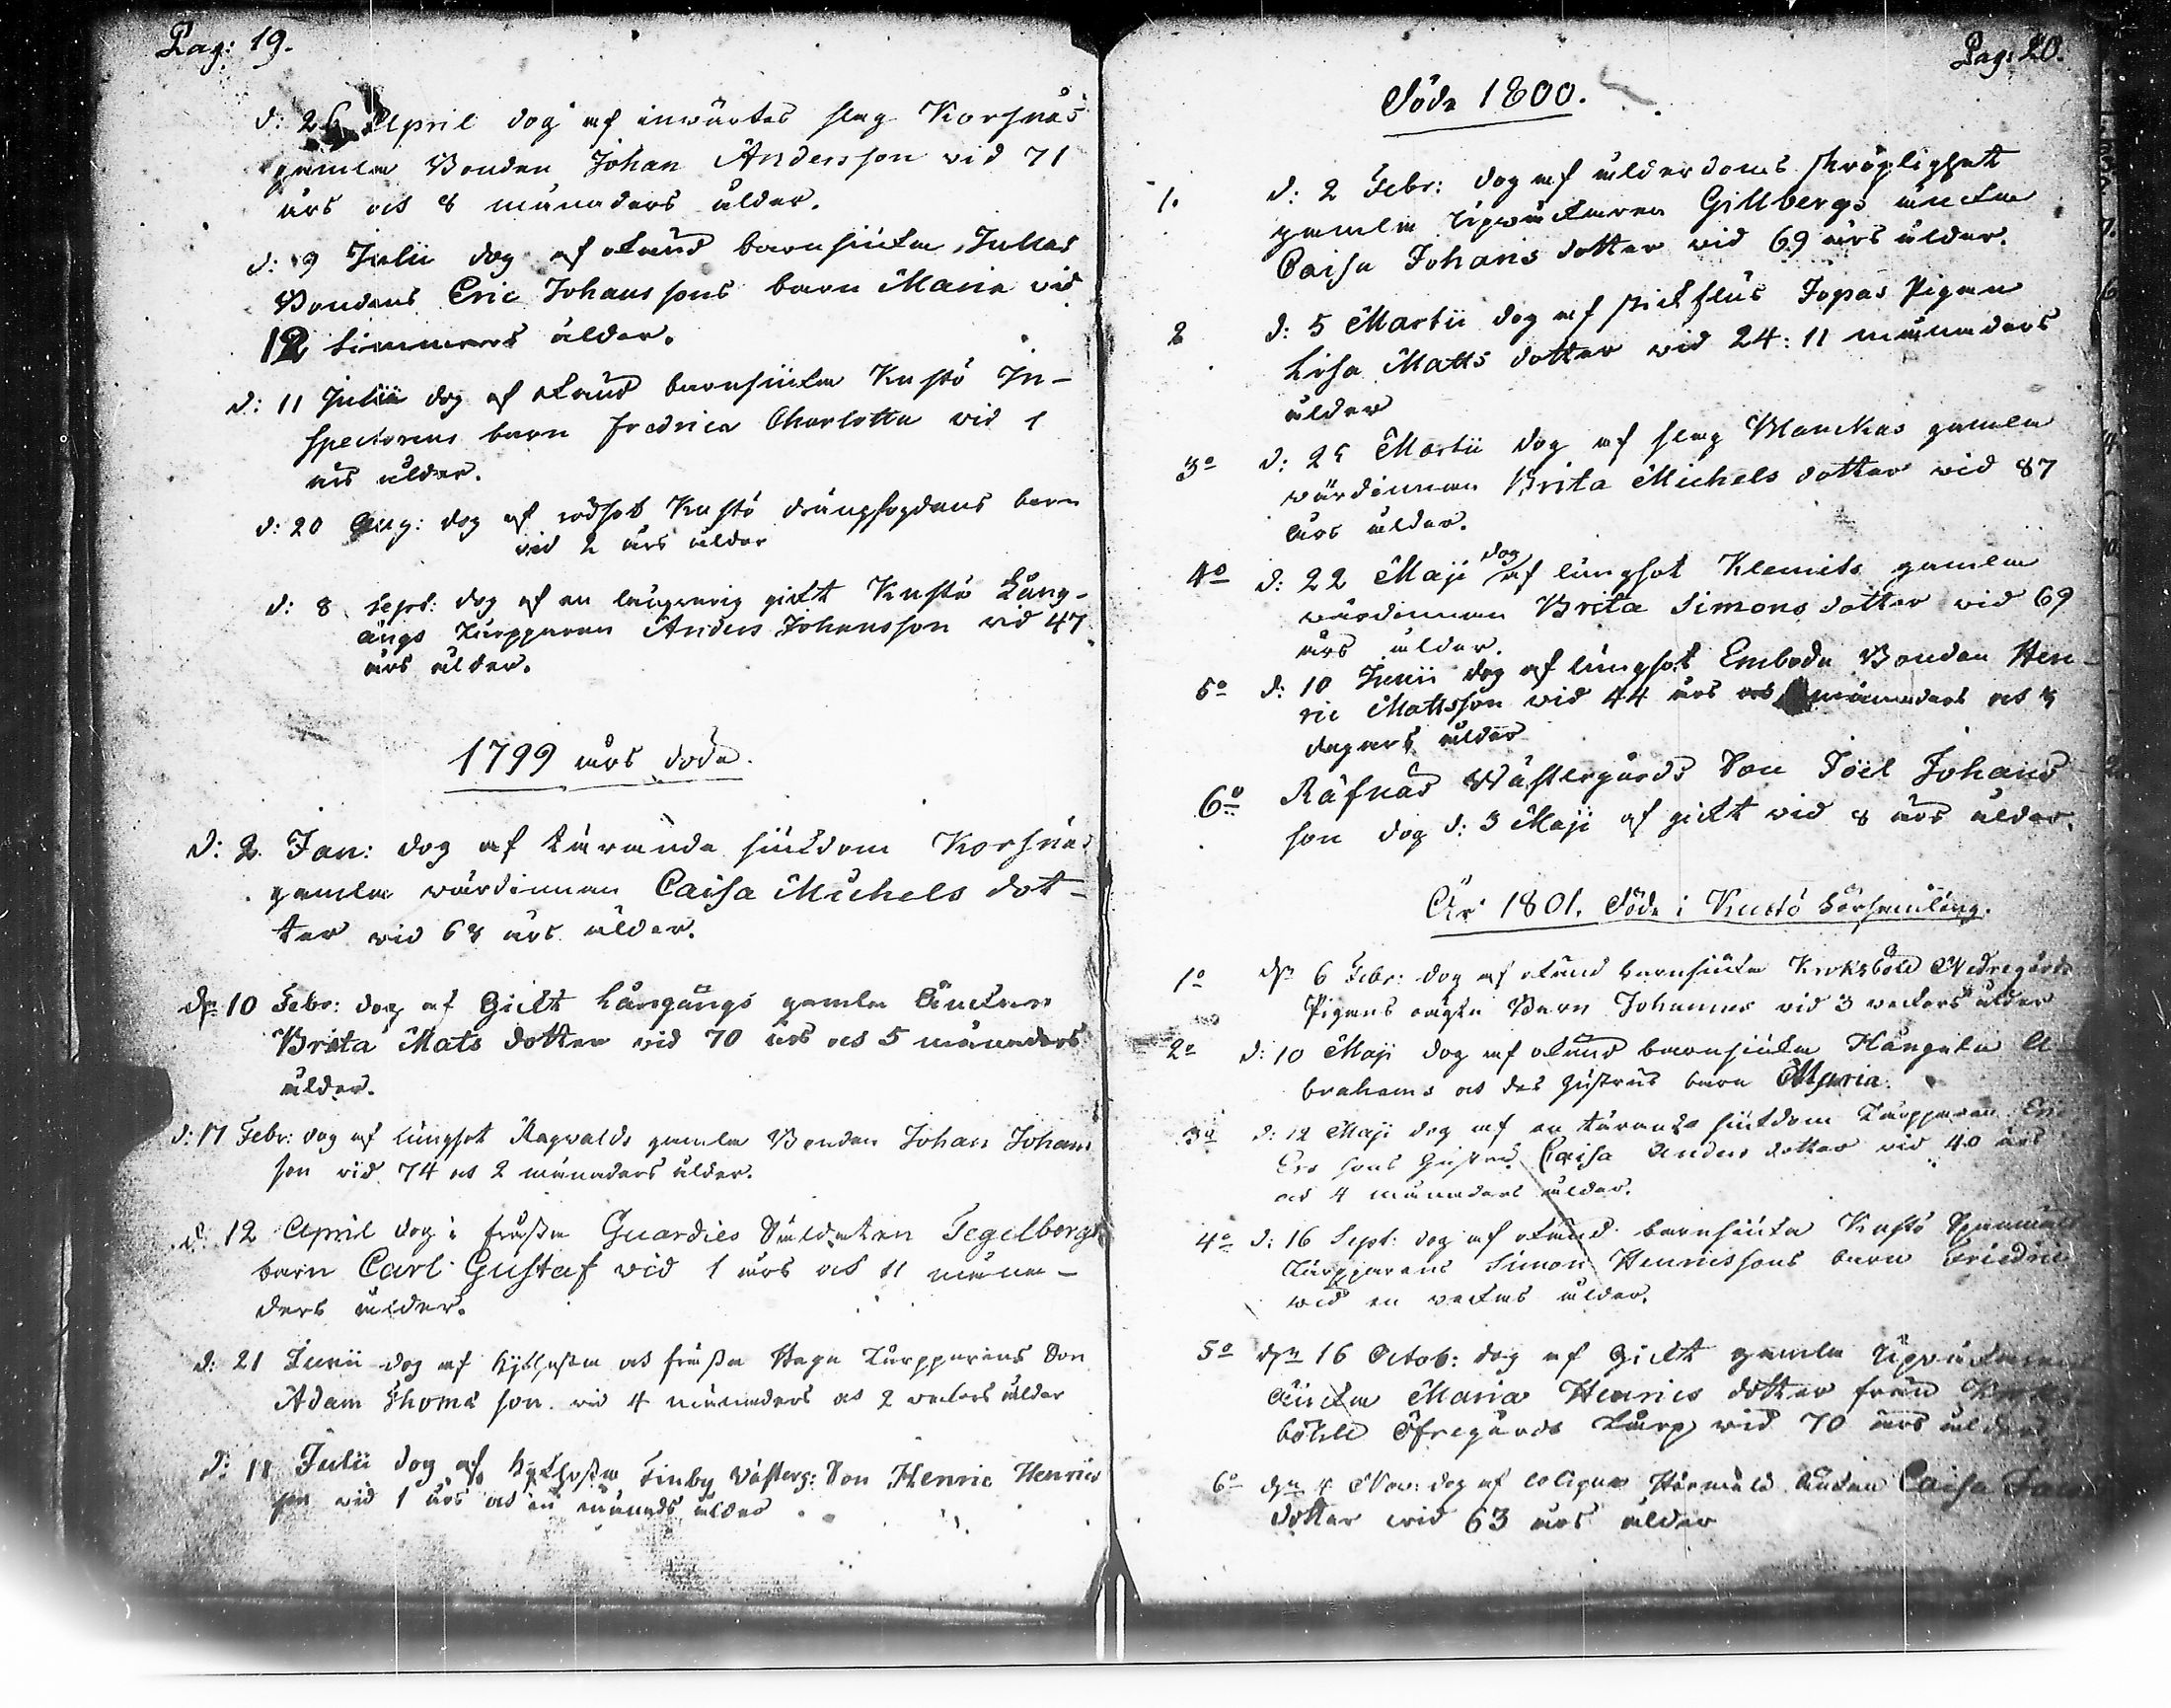 Pag: 19.
d: 26 April dog af inwärtes slag Korsnäs
gamla Bonden Johan Andersson vid 71
års och 8 månaders ålder.
d: 9 Julii dog af okänd barnsjuka Jullas
Bondens Eric Johanssons barn Maria vid
12 timmars ålder.
d: 11 Julii dog af okänd barnsjuka Kustö In-
spectorens barn Fredrica Charlotta vid 1
års ålder.
d: 20 Aug: dog af rödsot Kustö drängfogdens barn
vid 2 års ålder
d: 8 Sept: dog af en långvarig gickt Kustö Lång-
ängs Torpparen Anders Johansson vid 47
års ålder.
1799 års döda.
d: 2 Jan: dog af tärande sjukdom Korsnäs
gamla wärdinnan Caisa Michels dot-
ter vid 68 års ålder.
dn 10 Febr: dog af Gickt Långängs gamla Änckan
Brita Mats dotter vid 70 års och 5 månaders
ålder.
d: 17 Febr: dog af lungsot Ragwalds gamla Bonden Johan Johans
son vid 74 och 2 månaders ålder.
d: 12 April dog i fråssa Guardies Soldaten Tegelbergs
barn Carl Gustaf vid 1 års och 11 måna-
ders ålder.
d: 21 Junii dog af kikhosta och fråssa Torpparens Son
Adam Thomas son vid 4 månaders och 2 veckors ålder
d: 18 Julii dog af kikhosta Finby Västerg: Son Henric Henrics
son vid 1 års och en månads ålder
Pag: 20.
Döde 1800.
1. d: 2 Febr: dog af ålderdoms skröplighet
gamla Upwäcktaren Gillbergs äncka
Caisa Johans dotter vid 69 års ålder.
2 d: 5 Martii dog af stickflus Jopas Pigan
Lisa Matts dotter vid 24: 11 månaders
ålder
3o d: 25 Martii dog af slag Manckas gamla
wärdinnan Brita Michels dotter vid 87
års ålder.
4o d: 22 Maji dog af lungsot Klemits gamla
wärdinnan Brita Simons dotter vid 69
års ålder.
5o d: 10 Junii dog af lungsot Embola Bonden Hen-
ric Mattsson vid 44 års månaders och
dagars ålder
6o Räfnäs Wästergårds Son Joel Johans
son dog d: 3 Maji af gickt vid 8 års ålder.
År 1801. Döde i Kustö Församling.
1o dn 6 Febr: dog af okänd barnsjuka Kroksböle Nedregårds
Pigans oägta Barn Johannes vid 3 veckors ålder
2o d: 10 Maji dog af okänd barnsjuka A-
brahams och des hustrus barn Maria.
3o d: 12 Maji dog af en tärande sjukdom Torpparen Eric
Ers sons hustru Caisa Anders dotter vid 40 års
och 4 månaders ålder.
4o d: 16 Sept: dog af okänd barnsjuka Kustö
Torpparens Simon Henricssons barn Friedric
vid en veckas ålder.
5o dn 16 Octob: dog af Gickt gamla
Äncka Maria Henrics dotter från
böhle Öfregårds Torp vid 70 års ålder
6o dn 4 Nov: dog af colique Änckan Caisa
dotter vid 63 års ålder